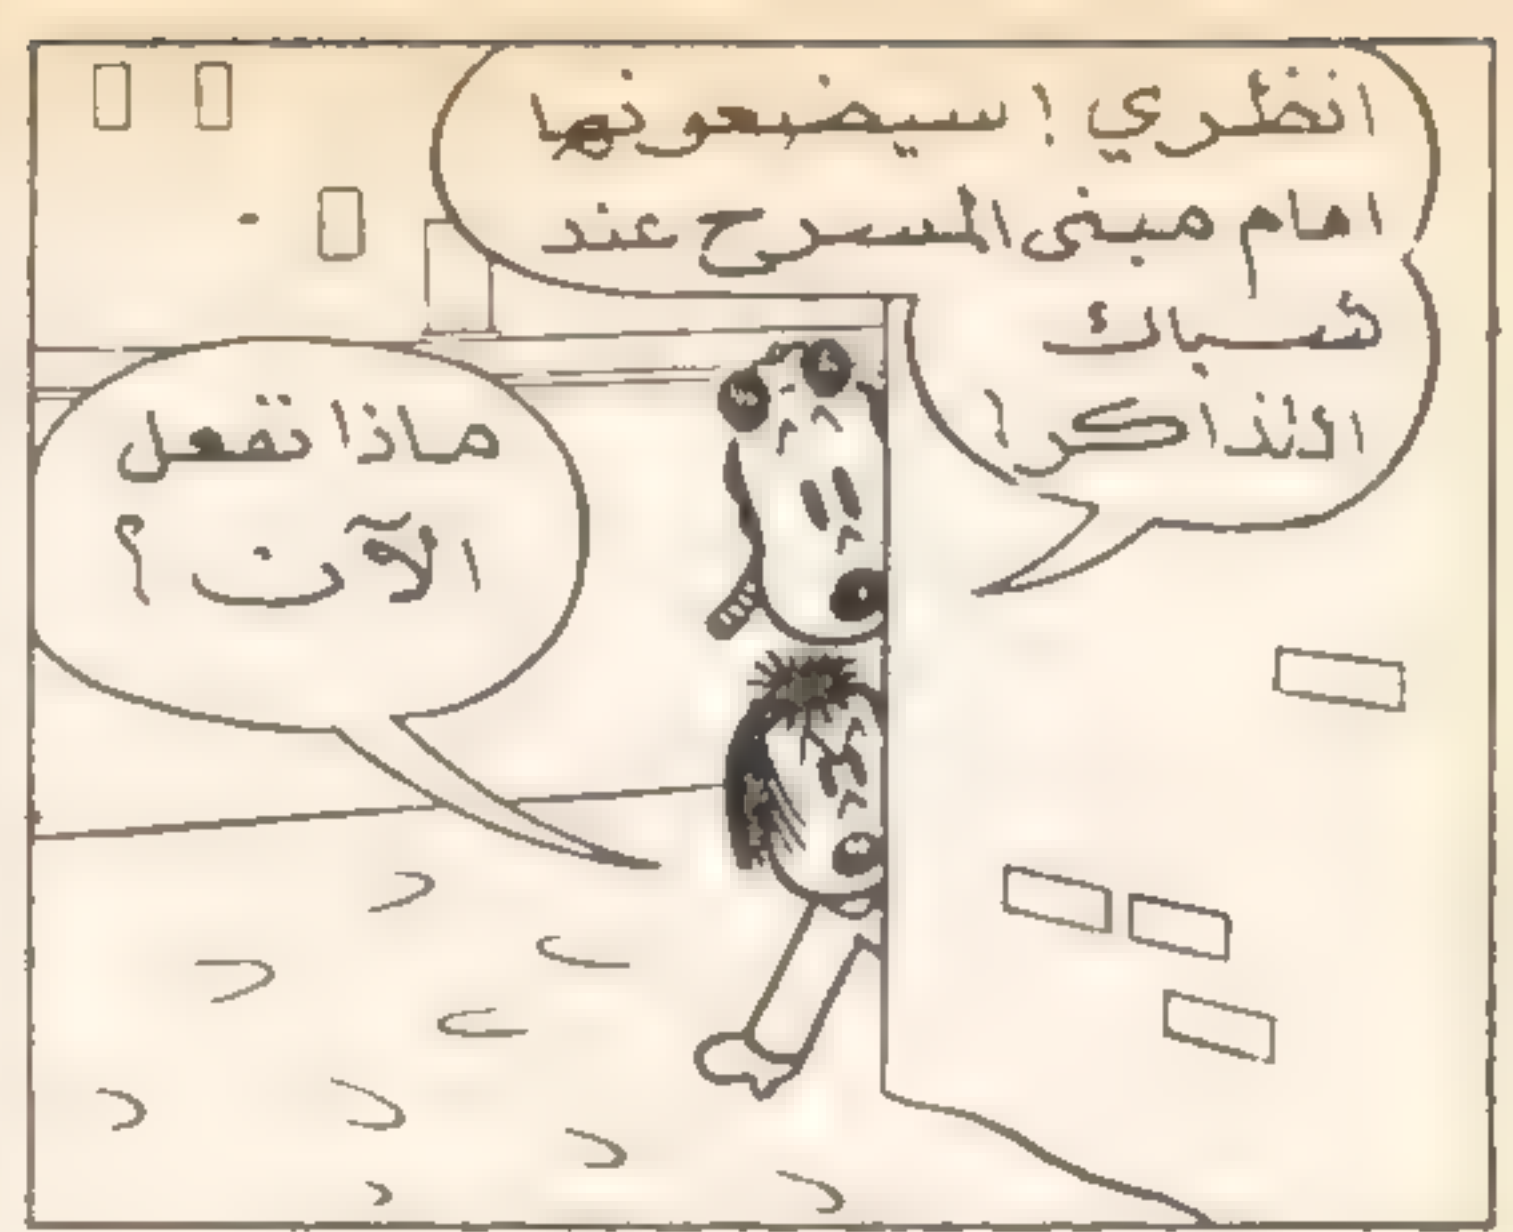 انظري ! سيضعونها
امام مبنى المسرح عند
شباك
التذاكر !
ماذا تفعل
الآن ؟